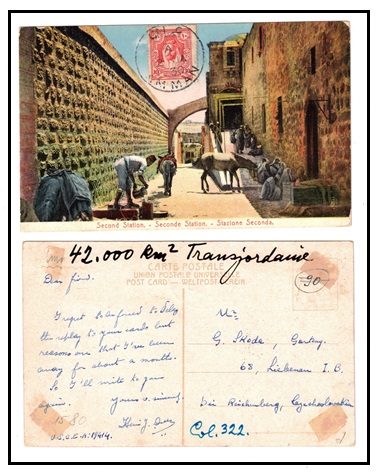 AMMAN
Second Station. - Seconde Station. - Stazione Seconda.
42.000 km² Transjordanie
CARTE POSTALE
UNION POSTALE UNIVERSELLE
POST CARD — WELTPOSTVEREIN
90
Dear friend.
I regret to be forced to delay
the replay to your cards but
reasons are that I've been
away for about a month.
So I'll write to you
again.
yours sincerely,
1580
G. Skoda, Garteng.
68, Liebenau I. B.
bei Reichenberg, Czechoslovakia
Col. 322.